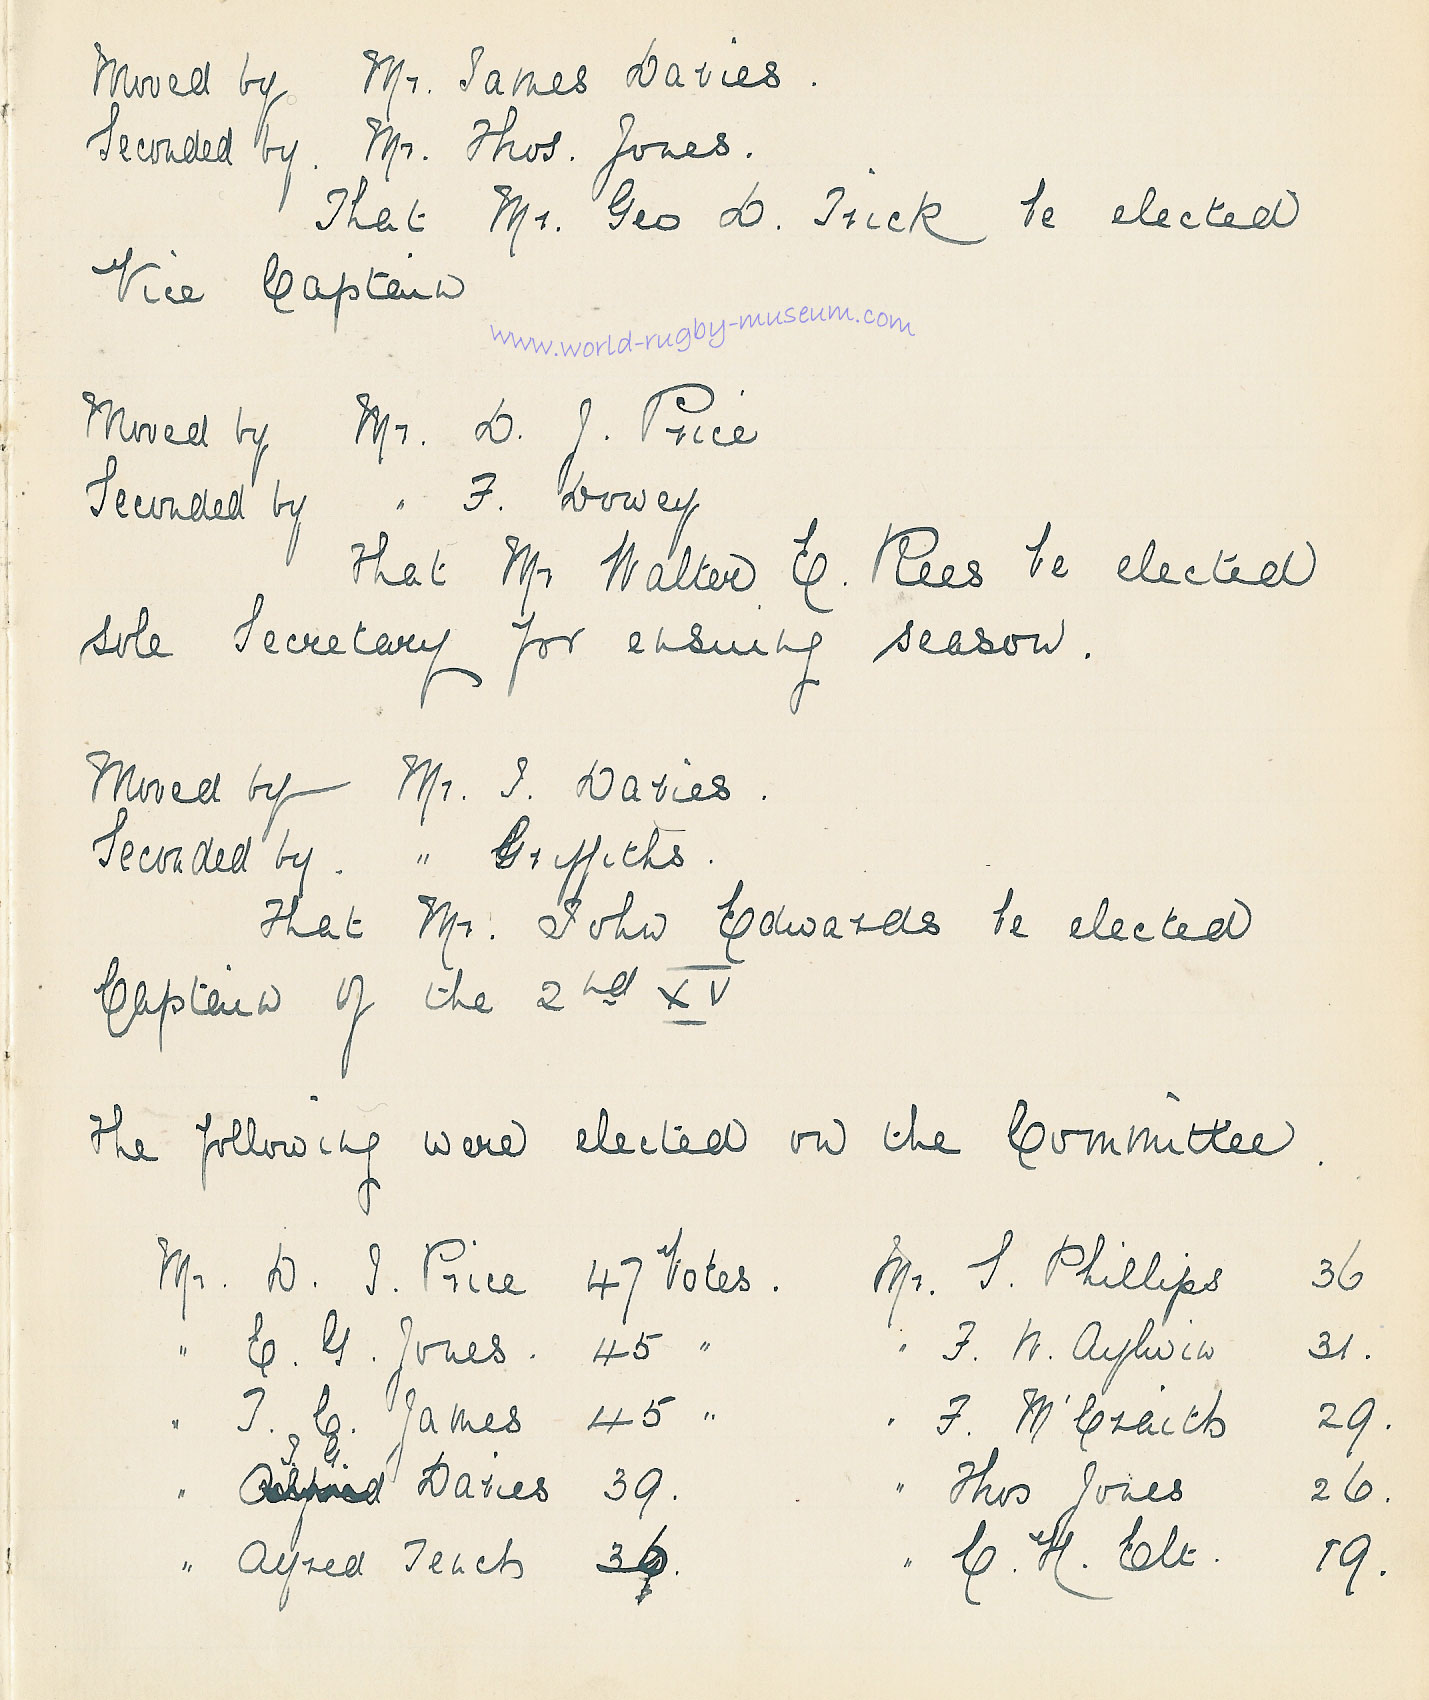 Moved by Mr. James Davies.
Seconded by. Mr. Thos. Jones.
That Mr. Geo D. Trick be elected
Vice Captain
www.world-rugby-museum.com
Moved by Mr. D. J. Price
Seconded by " F. Dowey
That Mr Walter E. Rees be elected
sole Secretary for ensuing season.
Moved by Mr. J. Davies.
Seconded by. " Griffiths.
That Mr. John Edwards be elected
Captain of the 2nd XV
The following were elected on the Committee.
Mr. D. J. Price 47 Votes. Mr. S. Phillips 36
" E. G. Jones. 45 " " F. W. Aylwin 31.
" T. C. James 45 " " F. M'Craith 29.
" J G Davies 39. " Thos Jones 26.
" Alfred Tench " C. H. Elt. 19.